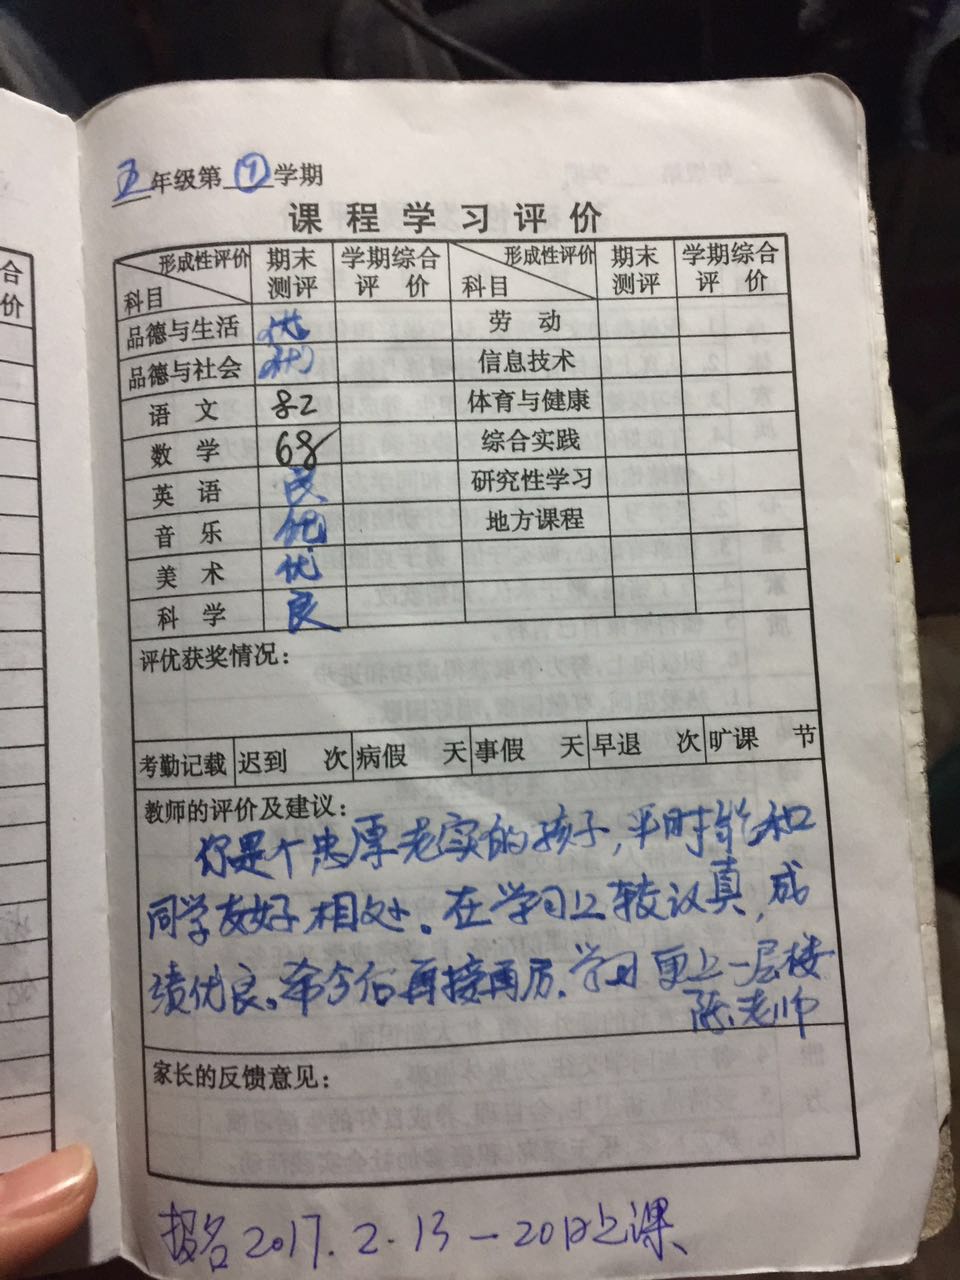 五年级第(9)学期
课程学习评价
形成性评价 科目 期末测评 学期综合评价 形成性评价 科目 期末测评 学期综合评价
品德与生活 优 劳动
品德与社会 优 信息技术
语文 82 体育与健康
数学 68 综合实践
英语 良 研究性学习
音乐 优 地方课程
美术 优
科学 良
评优获奖情况：
考勤记载 迟到 次 病假 天 事假 天 早退 次 旷课 节
教师的评价及建议：
你是个忠厚老实的孩子，平时能和
同学友好相处。在学习上较认真，成
绩优良。希今后再接再厉，学习更上一层楼
陈老师
家长的反馈意见：
报名2017.2.13—20日上课
合
价